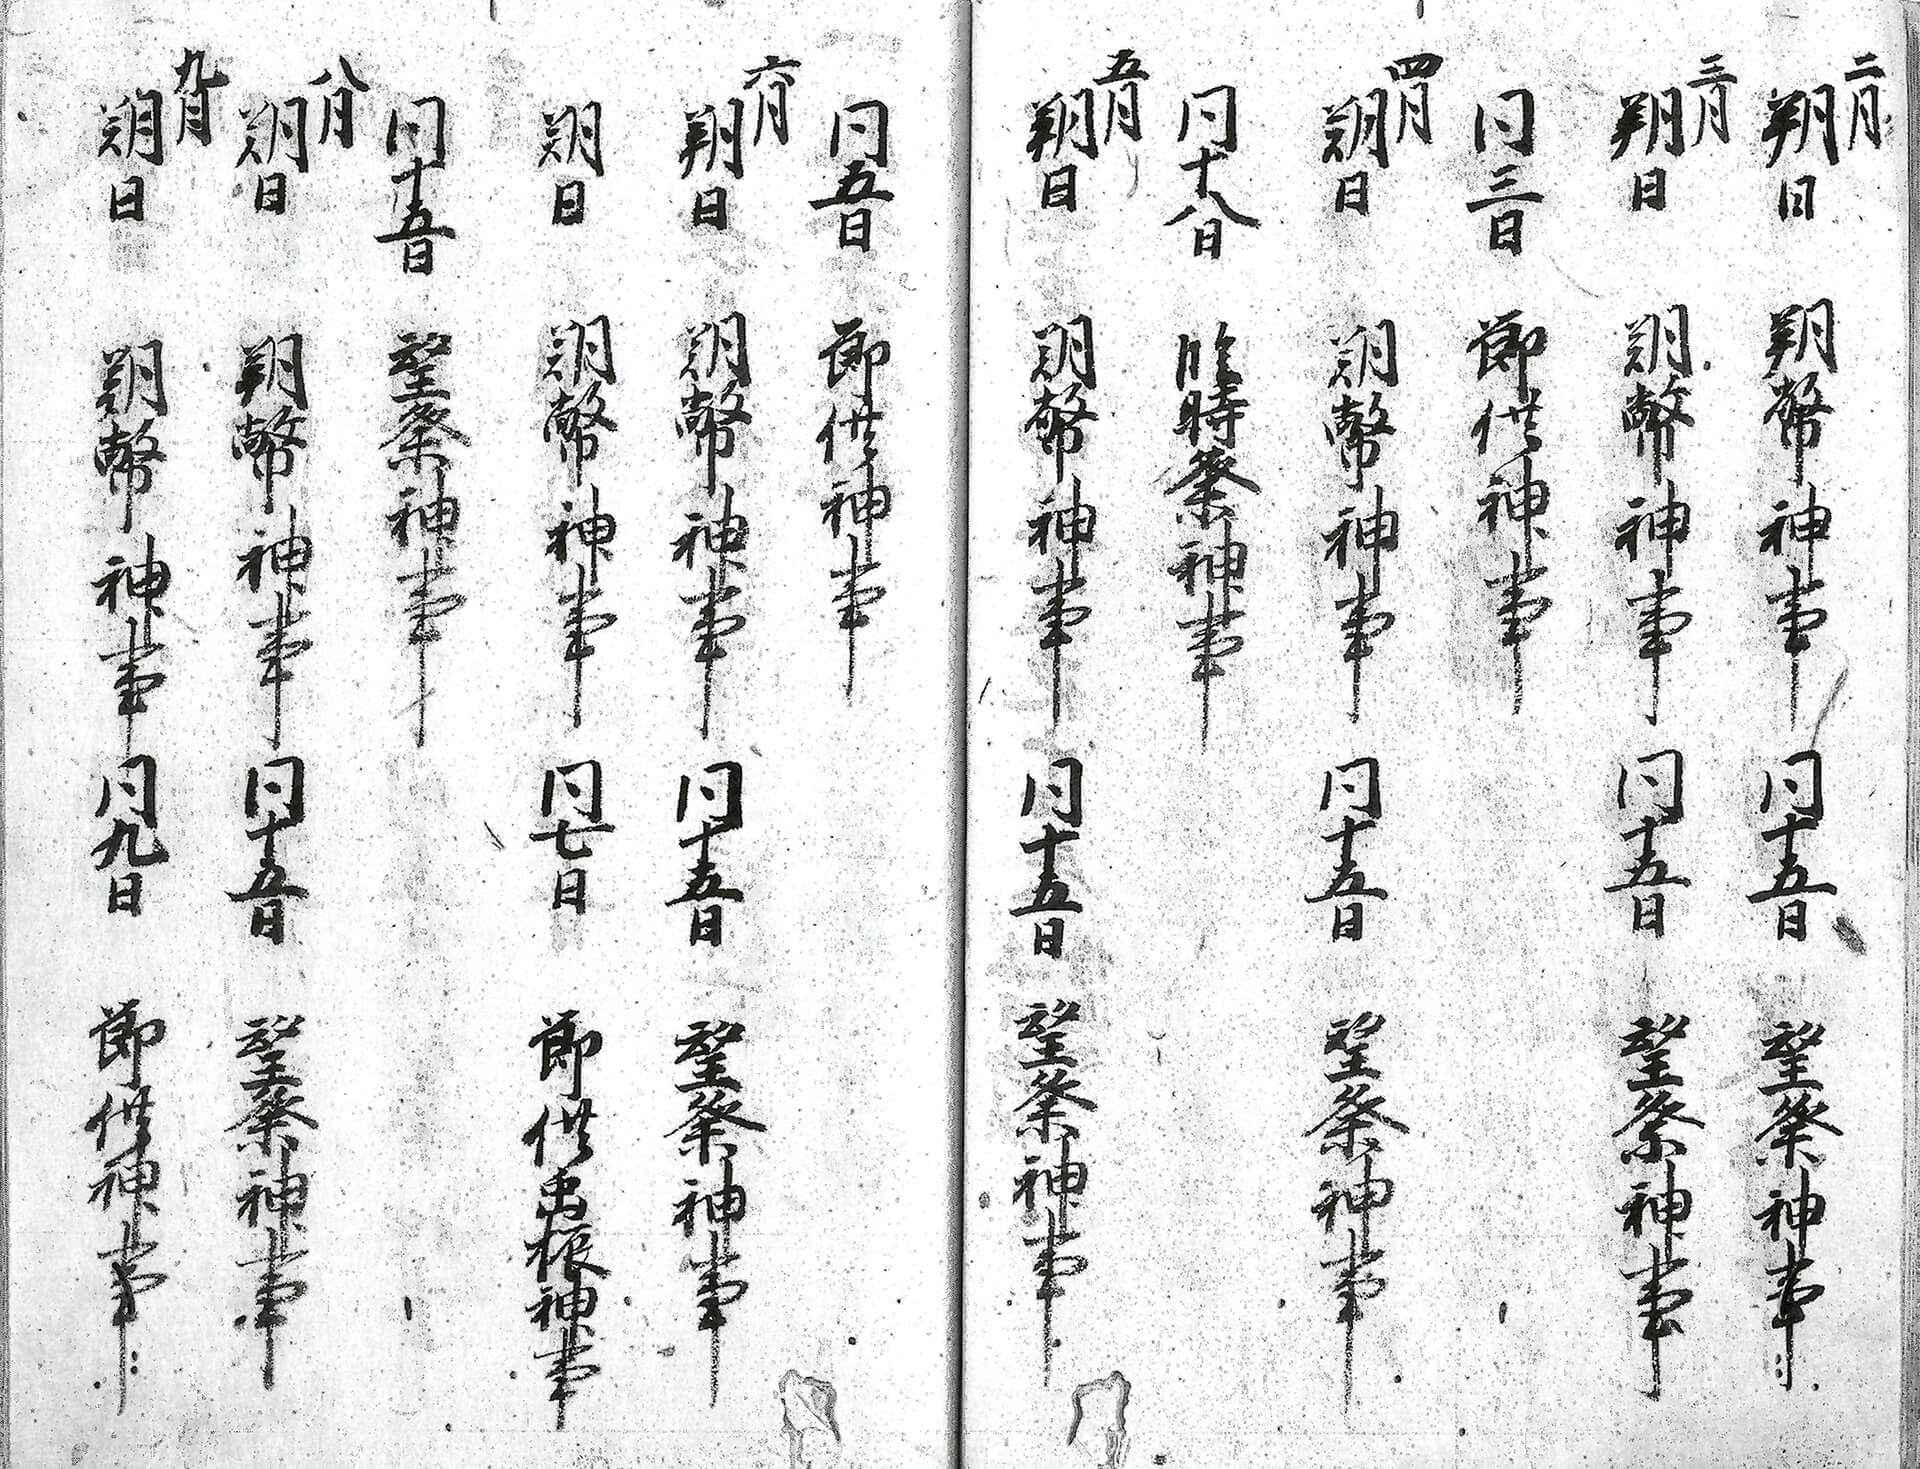 二月
朔日 朔幣神事 同十五日 望祭神事
三月
朔日 朔幣神事 同十五日 望祭神事
同三日 節供神事
四月
朔日 朔幣神事 同十五日 望祭神事
同十八日 臨時祭神事
五月
朔日 朔幣神事 同十五日 望祭神事
同五日 節供神事
六月
朔日 朔幣神事 同十五日 望祭神事
朔日 朔幣神事 同七日 節供 神事
同十五日 望祭神事
八月
朔日 朔幣神事 同十五日 望祭神事
九月
朔日 朔幣神事 同九日 節供神事